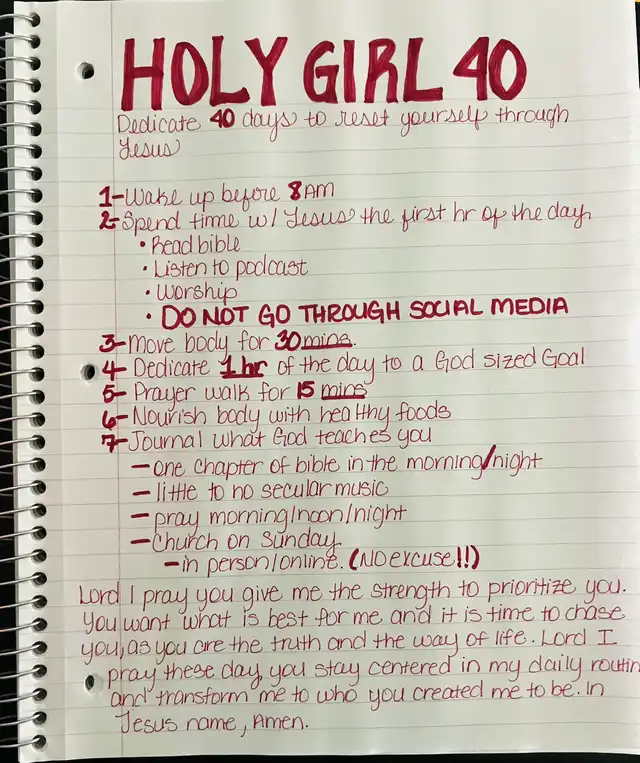 HOLY GIRL 40
Dedicate 40 days to reset yourself through
Jesus
1-Wake up before 8AM
2-Spend time w/ Jesus the first hr of the day.
• Read bible
• Listen to podcast
• Worship
• DO NOT GO THROUGH SOCIAL MEDIA
3-Move body for 30 mins.
4- Dedicate 1 hr of the day to a God sized Goal
5- Prayer walk for 15 mins
6-Nourish body with healthy foods
7-Journal what God teaches you
-one chapter of bible in the morning/night
-little to no secular music
-pray morning/noon/night
-Church on Sunday.
-in person/online. (NO excuse!!)
Lord I pray you give me the strength to prioritize you.
You want what is best for me and it is time to chase
you, as you are the truth and the way of life. Lord I
pray these day, you stay centered in my daily routin
and transform me to who you created me to be. In
Jesus name, Amen.